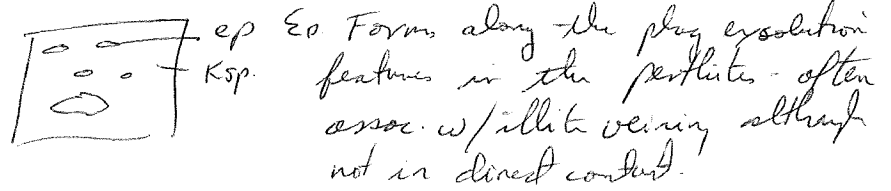 ep Ep. Forms along the plag exsolution
Ksp. features in the perthites - often
assoc. w/ illite veining although
not in direct contact.